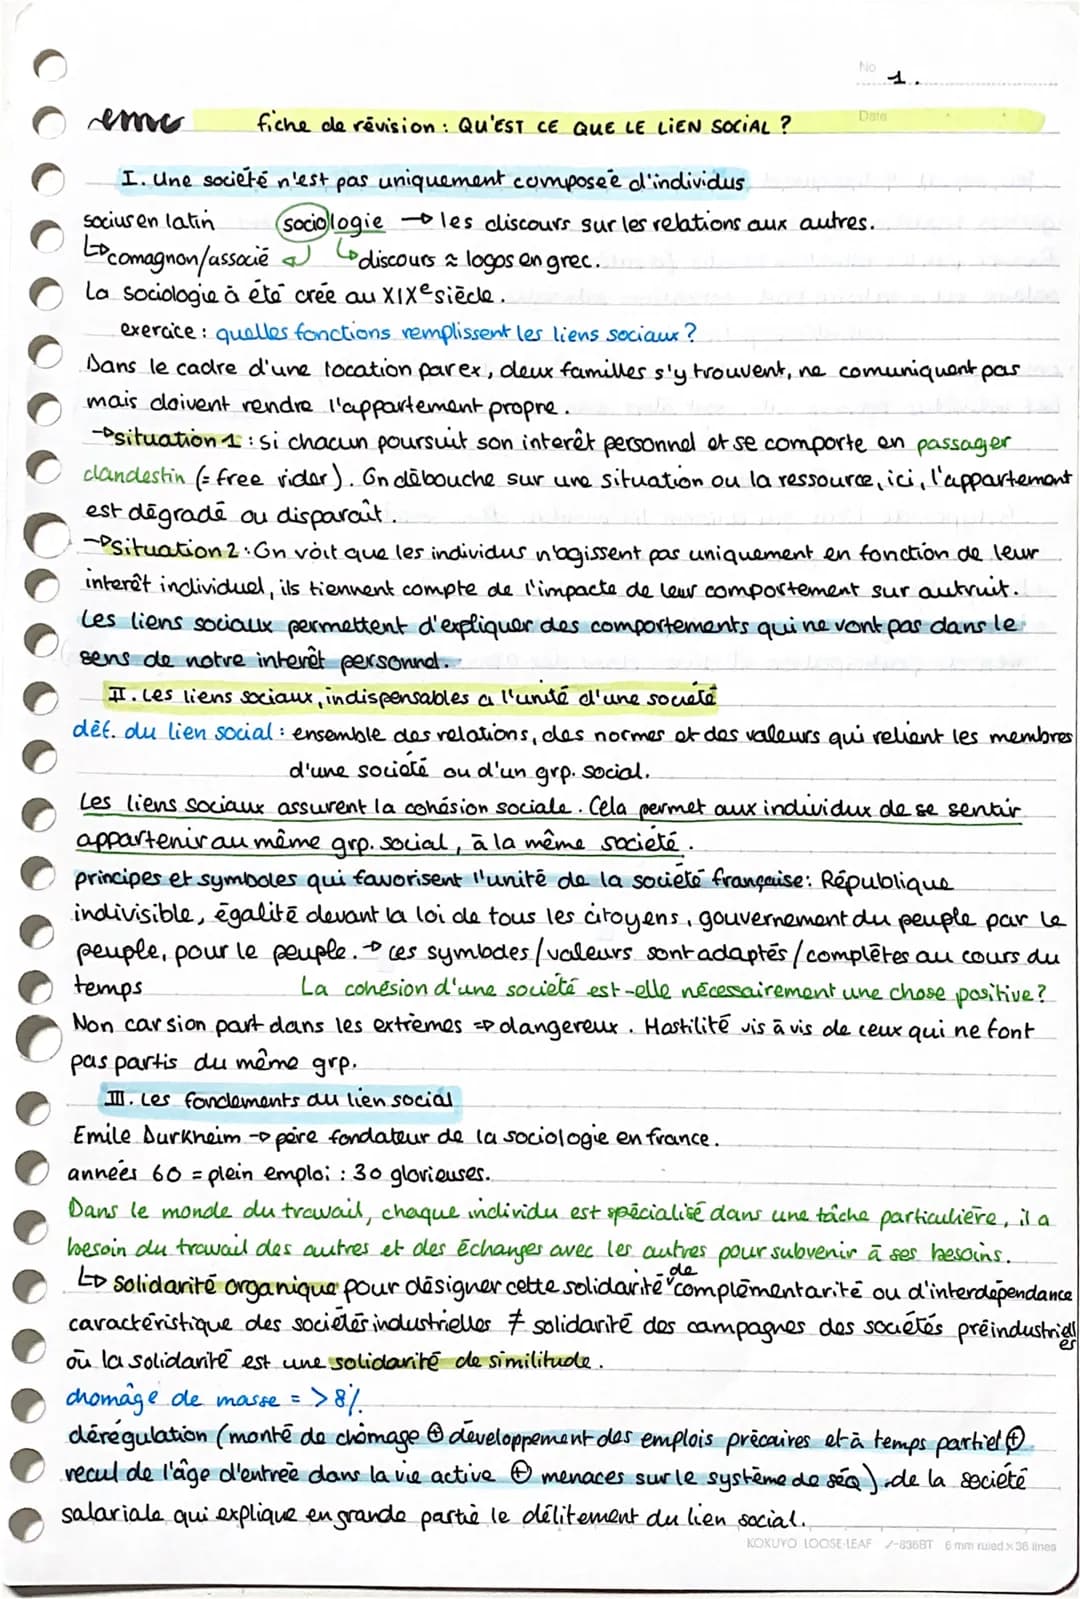 No 1.
Date
emc fiche de révision : QU'EST CE QUE LE LIEN SOCIAL ?
I. Une société n'est pas uniquement composée d'individus
socius en latin sociologie → les discours sur les relations aux autres.
↳ comagnon/associé ↲ ↳ discours ≈ logos en grec.
La sociologie à été crée au XIXe siècle.
exercice : quelles fonctions remplissent les liens sociaux ?
Dans le cadre d'une location par ex, deux familles s'y trouvent, ne comuniquent pas
mais doivent rendre l'appartement propre.
→ situation 1 : si chacun poursuit son interêt personnel et se comporte en passager
clandestin (= free rider). On débouche sur une situation ou la ressource, ici, l'appartement
est dégradé ou disparaît.
→ situation 2 : On voit que les individus n'agissent pas uniquement en fonction de leur
interêt individuel, ils tiennent compte de l'impacte de leur comportement sur autruit.
Les liens sociaux permettent d'expliquer des comportements qui ne vont pas dans le
sens de notre interêt personnel.
II. Les liens sociaux, indispensables a l'unité d'une société
déf. du lien social : ensemble des relations, des normes et des valeurs qui relient les membres
d'une société ou d'un grp. social.
Les liens sociaux assurent la cohésion sociale. Cela permet aux individux de se sentir
appartenir au même grp. social, à la même société.
principes et symboles qui favorisent l'unité de la société française : République
indivisible, égalité devant la loi de tous les citoyens, gouvernement du peuple par le
peuple, pour le peuple. → ces symboles/valeurs sont adaptés/complétés au cours du
temps La cohésion d'une société est-elle nécessairement une chose positive ?
Non car si on part dans les extrêmes ⇒ dangereux. Hostilité vis à vis de ceux qui ne font
pas partis du même grp.
III. Les fondements du lien social
Emile Durkheim → père fondateur de la sociologie en france.
années 60 = plein emploi : 30 glorieuses.
Dans le monde du travail, chaque individu est spécialisé dans une tâche particulière, il a
besoin du travail des autres et des échanges avec les autres pour subvenir à ses besoins.
↳ solidarité organique pour désigner cette solidarité de complémentarité ou d'interdépendance
caractéristique des sociétés industrielles ≠ solidarité des campagnes des sociétés préindustrielles
où la solidarité est une solidarité de similitude.
chomâge de masse = > 8%
dérégulation (monté de chômage ⊕ développement des emplois précaires et à temps partiel ⊕
recul de l'âge d'entrée dans la vie active ⊕ menaces sur le système de séq) de la société
salariale qui explique en grande partie le délitement du lien social.
KOKUYO LOOSE-LEAF ノ-836BT 6 mm ruled × 36 lines